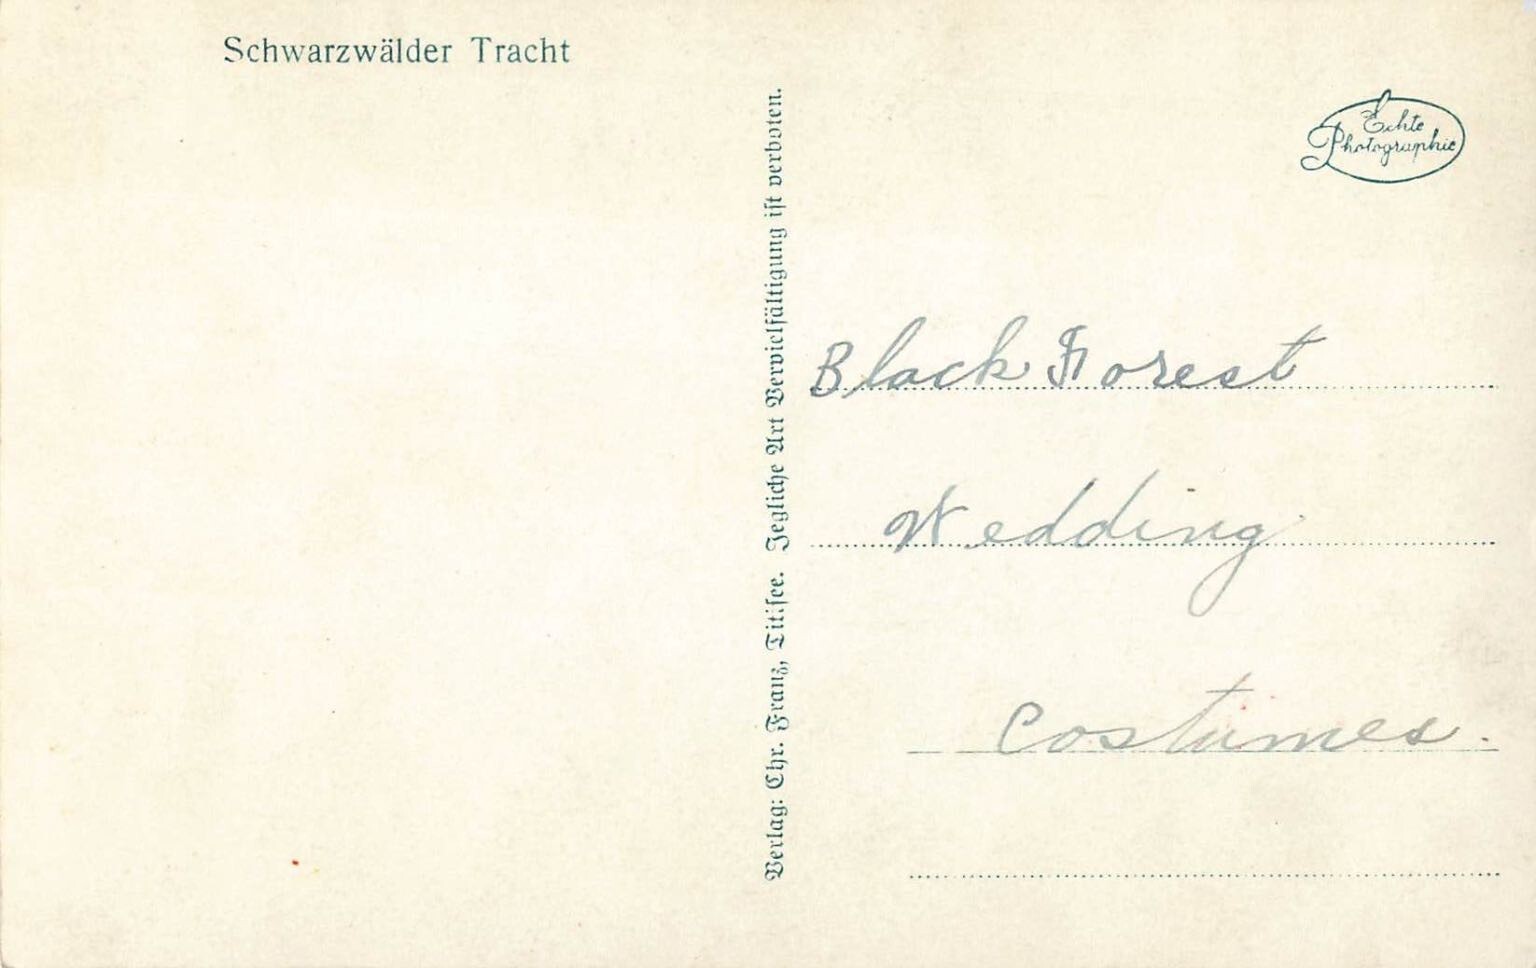 Schwarzwälder Tracht
Echte
Photographie
Verlag: Chr. Franz, Titisee. Jegliche Art Vervielfältigung ist verboten.
Black Forest
Wedding
Costumes.